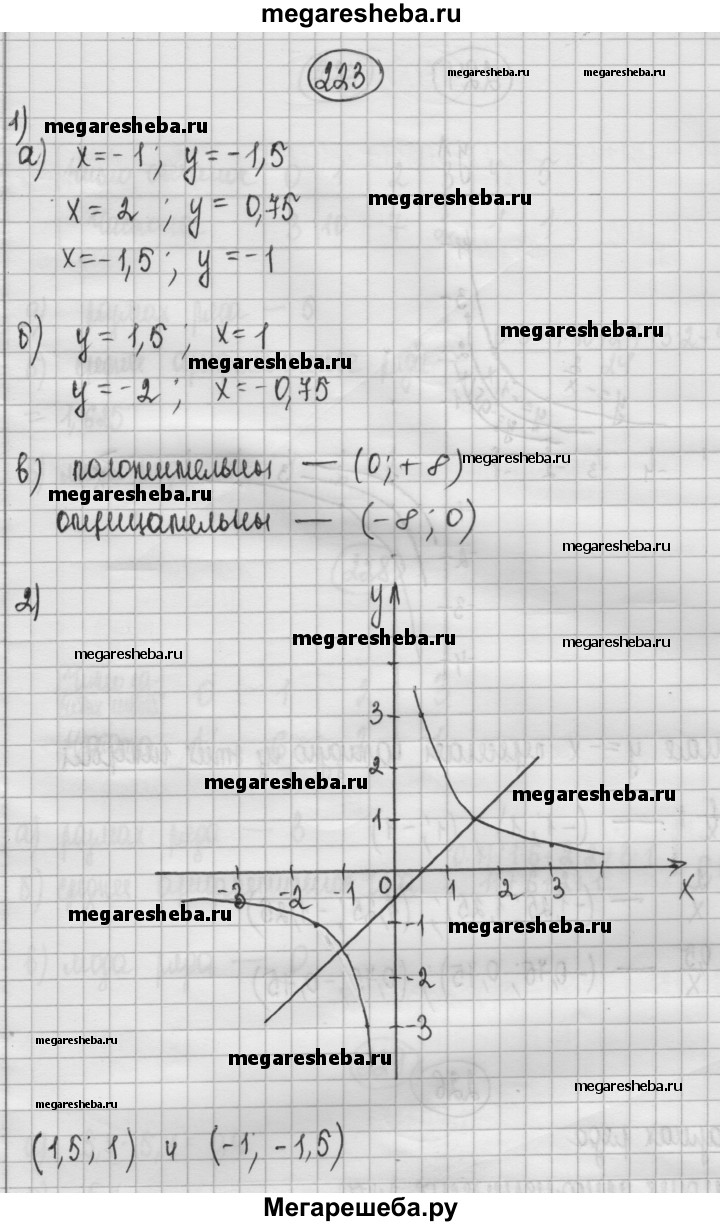 megaresheba.ru
223
megaresheba.ru megaresheba.ru
1) megaresheba.ru
а) x = -1 ; y = -1,5
x = 2 ; y = 0,75 megaresheba.ru
x = -1,5 ; y = -1
б) y = 1,5 ; x = 1 megaresheba.ru
megaresheba.ru
y = -2 ; x = -0,75
в) положительны — (0; +8) megaresheba.ru
megaresheba.ru
отрицательны — (-8 ; 0)
megaresheba.ru
2) y
megaresheba.ru megaresheba.ru
megaresheba.ru
3
2
megaresheba.ru megaresheba.ru
1
-3 -2 -1 0 1 2 3 x
megaresheba.ru -1 megaresheba.ru
-2
-3
megaresheba.ru
megaresheba.ru
megaresheba.ru
megaresheba.ru
(1,5 ; 1) и (-1; -1,5)
Мегарешеба.ру